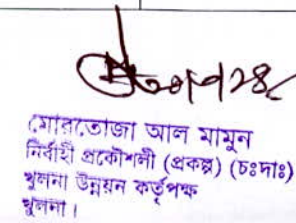 মোরতোজা আল মামুন
নির্বাহী প্রকৌশলী (প্রকল্প) (চঃদাঃ)
খুলনা উন্নয়ন কর্তৃপক্ষ
খুলনা।